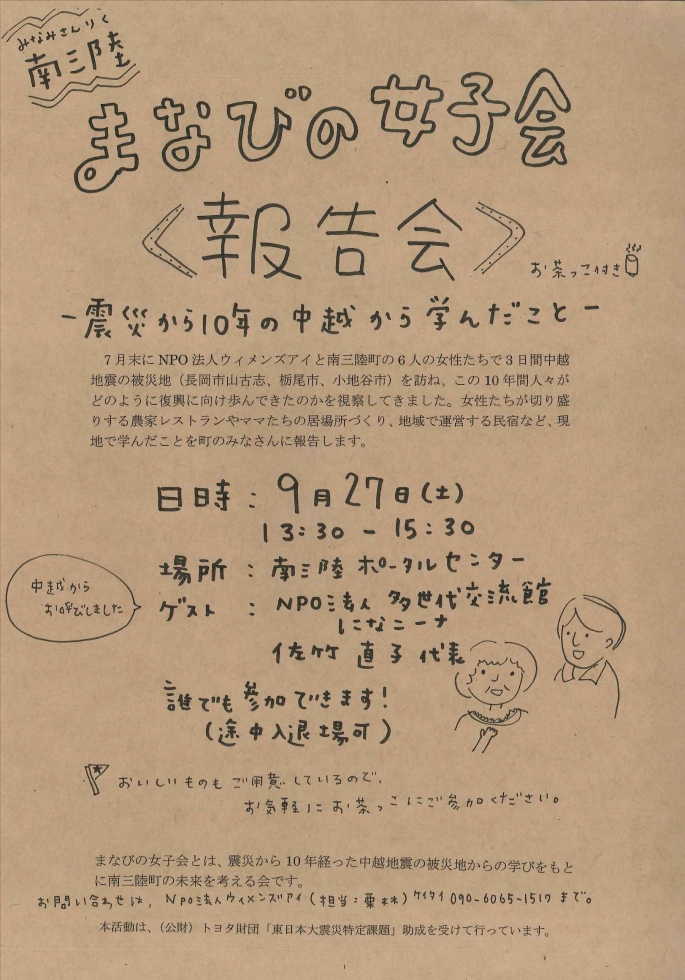 みなみさんりく
南三陸
まなびの女子会
〈報告会〉
お茶っこ付き
－震災から10年の中越から学んだこと－
7月末にNPO法人ウィメンズアイと南三陸町の6人の女性たちで3日間中越
地震の被災地（長岡市山古志、栃尾市、小地谷市）を訪ね、この10年間人々が
どのように復興に向け歩んできたのかを視察してきました。女性たちが切り盛
りする農家レストランやママたちの居場所づくり、地域で運営する民宿など、現
地で学んだことを町のみなさんに報告します。
日時：9月27日（土）
13:30－15:30
場所：南三陸ポータルセンター
中越から
お呼びしました
ゲスト：NPO法人 多世代交流館
になニーナ
佐竹 直子 代表
誰でも参加できます！
（途中入退場可）
おいしいものもご用意しているので、
お気軽にお茶っこにご参加ください。
まなびの女子会とは、震災から10年経った中越地震の被災地からの学びをもと
に南三陸町の未来を考える会です。
お問い合わせは、NPO法人ウィメンズアイ（担当：栗林）ケイタイ 090-6065-1517 まで。
本活動は、（公財）トヨタ財団「東日本大震災特定課題」助成を受けて行っています。